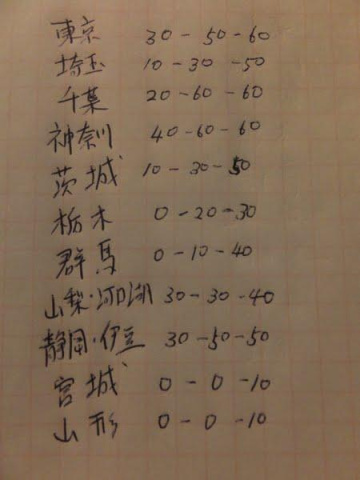 東京 30-50-60
埼玉 10-30-50
千葉 20-60-60
神奈川 40-60-60
茨城 10-30-50
栃木 0-20-30
群馬 0-10-40
山梨・河口湖 30-30-40
静岡・伊豆 30-50-50
宮城 0-0-10
山形 0-0-10